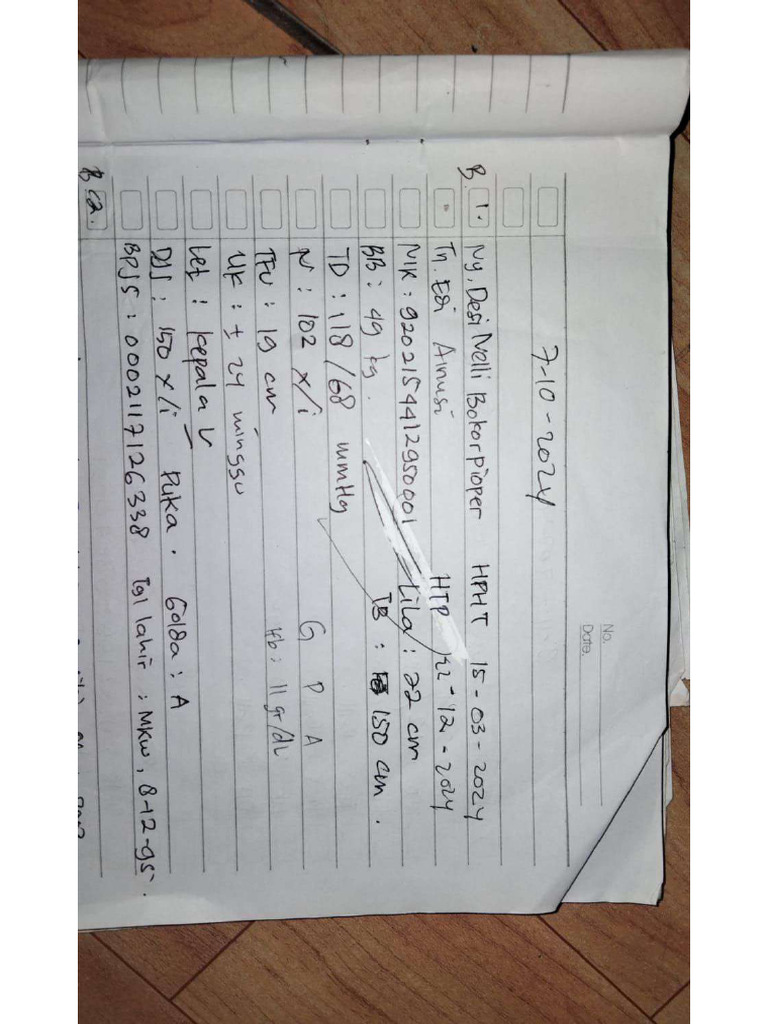 No.
Date.
7-10-2024
B. 1. Ny. Desi Nelli Bokorpioper HPHT 15-03-2024
Tn. Edi Ainusi HTP 22-12-2024
NIK : 9202154412950001 Lila : 22 cm
BB : 49 kg. TB : 150 cm.
TD : 118/68 mmHg
N : 102 x/i G P A
TFU : 19 cm Hb : 11 gr/dL
UK : ± 24 minggu
Let : kepala U
DJJ : 150 x/i Puka. Golda : A
BPJS : 0002117126338 Tgl lahir : MKW, 8-12-95.
B 2.